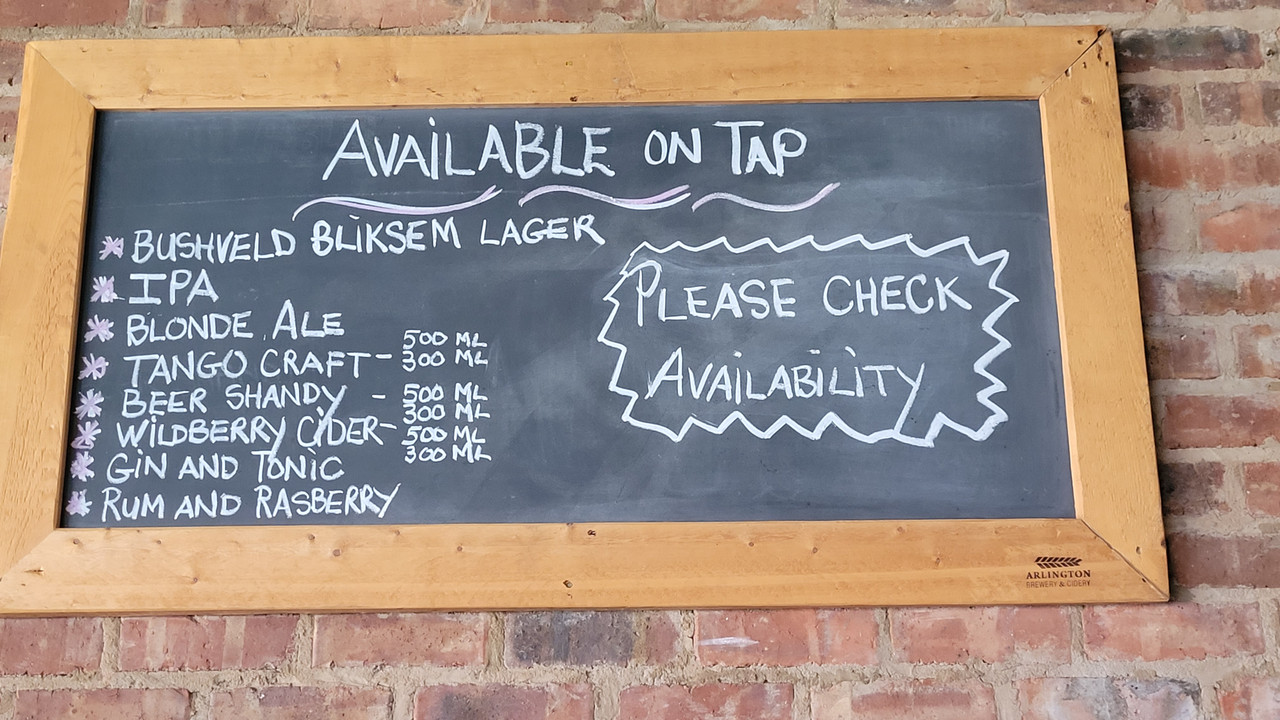 AVAILABLE ON TAP
* BUSHVELD BLIKSEM LAGER
* IPA
* BLONDE ALE
* TANGO CRAFT - 500 ML
300 ML
* BEER SHANDY - 500 ML
300 ML
* WILDBERRY CIDER - 500 ML
300 ML
* GIN AND TONIC
* RUM AND RASBERRY
PLEASE CHECK
AVAILABILITY
ARLINGTON
BREWERY & CIDERY